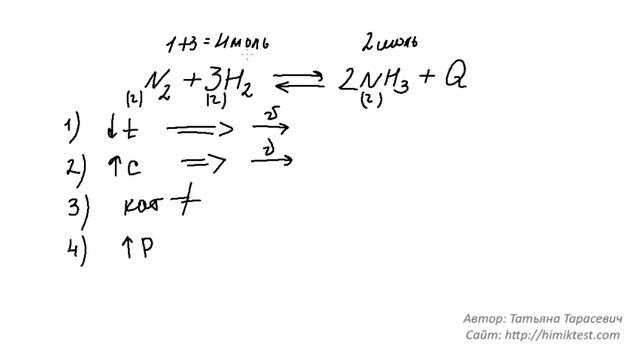 1+3 = 4 моль 2 моль
N₂ + 3H₂ ⇄ 2NH₃ + Q
(г) (г) (г)
1) ↓ t ⇒ v→
2) ↑ C ⇒ v→
3) кат ≠
4) ↑ P
Автор: Татьяна Тарасевич
Сайт: http://himiktest.com